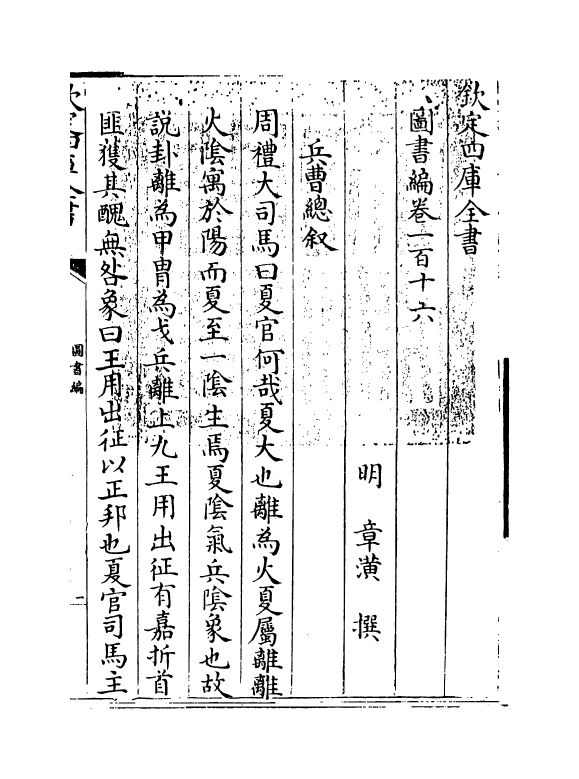 欽定四庫全書
圖書編卷一百十六
明 章潢 撰
兵曹總叙
周禮大司馬曰夏官何哉夏大也離為火夏屬離離
火陰寓於陽而夏至一陰生焉夏陰氣兵陰象也故
説卦離為甲胄為戈兵離上九王用出征有嘉折首
匪獲其醜無咎象曰王用出征以正邦也夏官司馬主
欽定四庫全書
圖書編
一